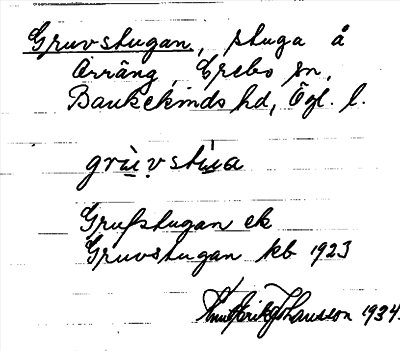 Gruvstugan, stuga å
Ärräng, Örebo sn,
Bankekinds hd, Ögl. l.
grùv̥stùa
Grufstugan ek
Gruvstugan kb 1923
Knut Erik Johansson 1934.